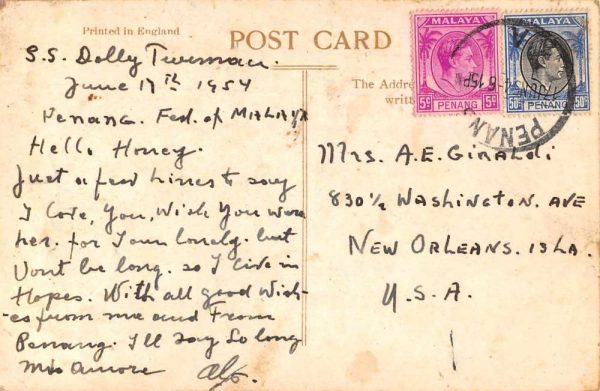 Printed in England
POST CARD
The Addre
writt
MALAYA
5¢ PENANG 5¢
MALAYA
50¢ PENANG 50¢
PENANG
17 JUN 54 6-15PM
S.S. Dolly Turman.
June 17th 1954
Penang. Fed. of MALAYA
Hello Honey.
Just a few lines to say
I love, you, wish you were
her. for I am lonely. but
Wont be long. so I live in
Hopes. With all good wish-
es from me and From
Penang. I'll say So long
Mio Amore Alf.
Mrs. A.E. Giraldi
830½ Washington. Ave
New Orleans. 13 La.
U.S.A.